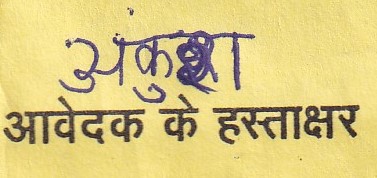 अंकुश
आवेदक के हस्ताक्षर